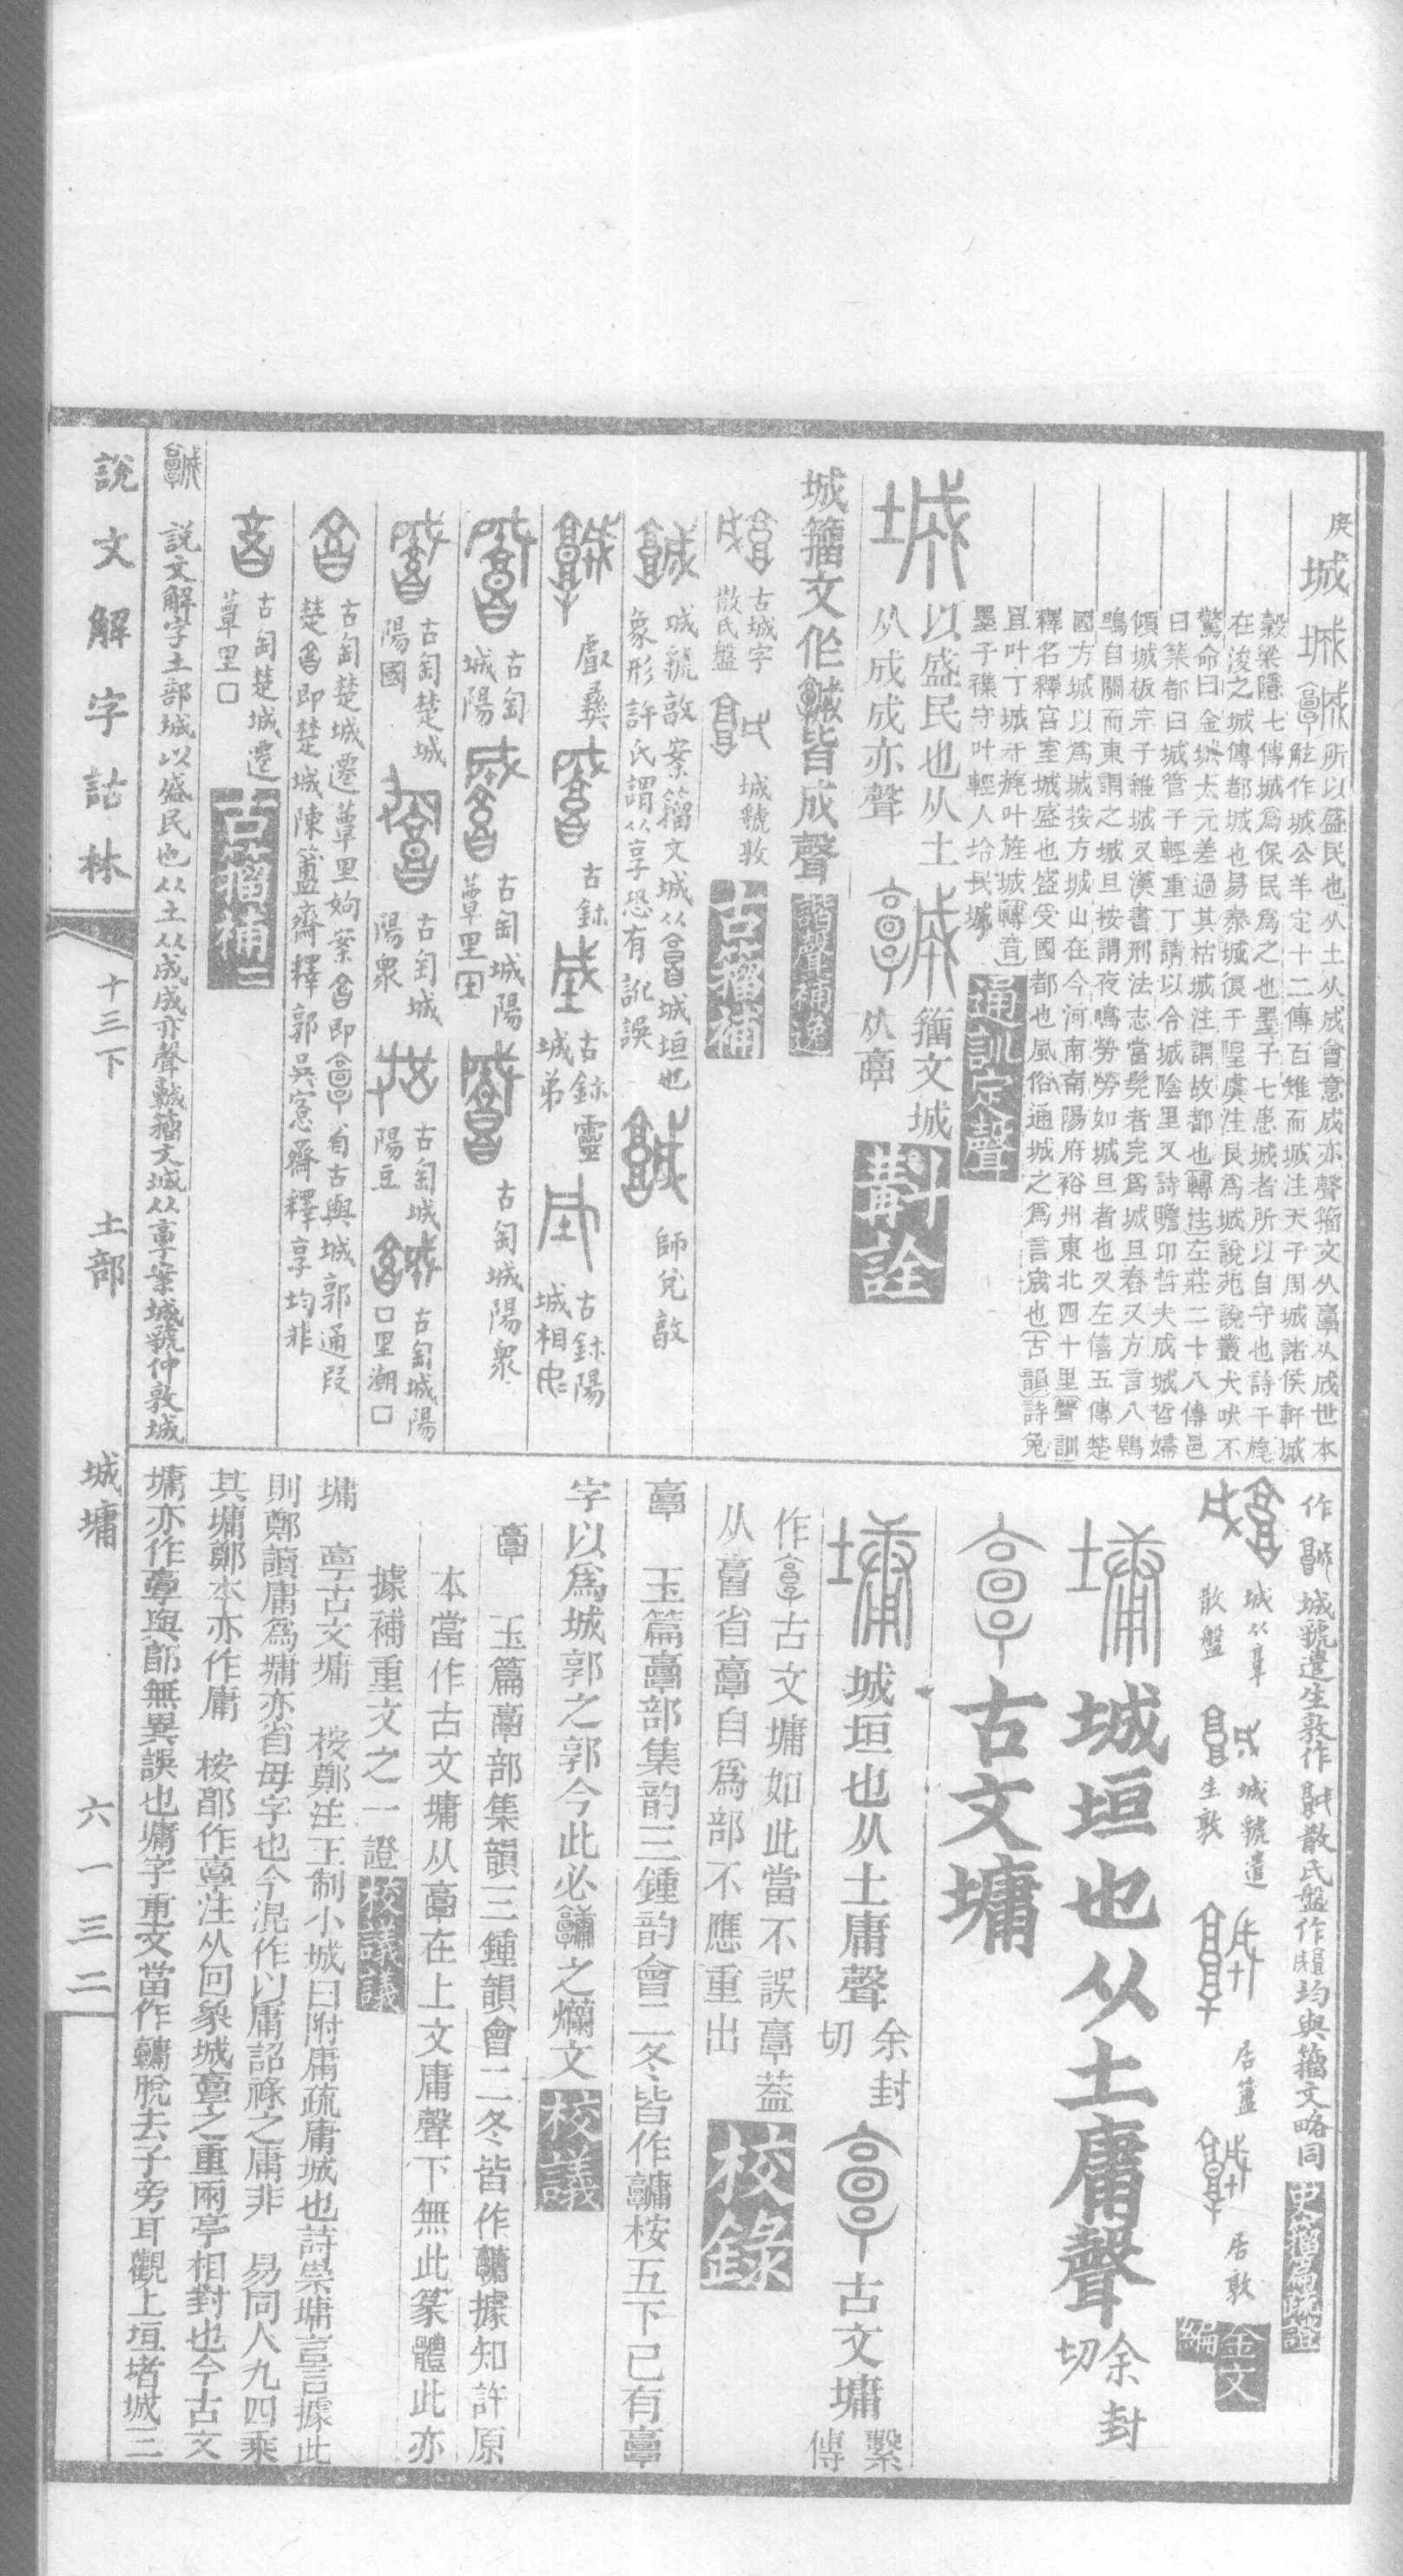 庚
城
所以盛民也从土从成會意成亦聲籀文从𩫖从成世本
鮌作城公羊定十二傳百雉而城注天子周城諸侯軒城
穀梁隱七傳城爲保民爲之也墨子七患城者所以自守也詩干旄
在浚之城傳都城也易泰城復于隍虞注艮爲城說苑說叢犬吠不
驚命曰金城太元差過其枯城注謂故都也轉注左莊二十八傳邑
曰築都曰城管子輕重丁請以令城陰里又詩瞻卬哲夫成城哲婦
傾城板宗子維城又漢書刑法志當髡者完爲城旦舂又方言八鶡
鳴自關而東謂之城旦按謂夜鳴勞勞如城旦者也又左僖五傳楚
國方城以爲城按方城山在今河南南陽府裕州東北四十里聲訓
釋名釋宮室城盛也盛受國都也風俗通城之爲言宬也古韻詩兔
罝叶丁城干旄叶旌城轉音
墨子襍守叶輕人給長城
通訓定聲
城以盛民也从土
从成成亦聲
籀文城
从𩫖
斠詮
城籀文作𩫨皆成聲
諧聲補逸
古城字
散氏盤
城虢敦
古籀補
城虢敦案籀文城从𩫖城垣也
象形許氏謂从享恐有訛誤
師兌敦
𠭯彝
古鉢
古鉢靈
城弟
古鉢陽
城相
古匋
城陽
古匋城陽
蕈里
古匋城陽衆
古匋楚城
陽國
古匋城
陽衆
古匋城
陽豆
古匋城陽
口里潮口
古匋楚城遷蕈里
案𩫖即𩫖省古與城郭通叚
楚𩫖即楚城陳簠齋釋郭吳愙齋釋享均非
古匋楚城遷
蕈里口
古籀補二
說文解字土部城以盛民也从土从成成亦聲𩫨籀文城从𩫖案城虢仲敦城
作
城虢遣生敦作
散氏盤作
均與籀文略同
史籀篇疏證
城从𩫖
散盤
城虢遣
生敦
居簋
居敦
金文
編
墉城垣也从土庸聲
余封
切
𩫖古文墉
墉城垣也从土庸聲
余封
切
𩫖古文墉
繫
傳
作𩫖古文墉如此當不誤𩫖蓋
从𣆪省𩫖自爲部不應重出
校錄
𩫖 玉篇𩫖部集韵三鍾韵會二冬皆作𩫏桉五下已有𩫖
字以爲城郭之郭今此必𩫏之爛文
校議
𩫖 玉篇𩫖部集韻三鍾韻會二冬皆作𩫏據知許原
本當作古文墉从𩫖在上文庸聲下無此篆體此亦
據補重文之一證
校議議
墉 𩫖古文墉 桉鄭注王制小城曰附庸疏庸城也詩崇墉言言據此
則鄭讀庸爲墉亦省母字也今混作以庸詔祿之庸非 易同人九四乘
其墉鄭本亦作庸 桉部作𩫖注从回象城𩫖之重兩亭相對也今古文
墉亦作𩫖與部無異誤也墉字重文當作𩫏脫去子旁耳觀上垣堵城三
說文解字詁林
十三下
土部
城墉
六一三二